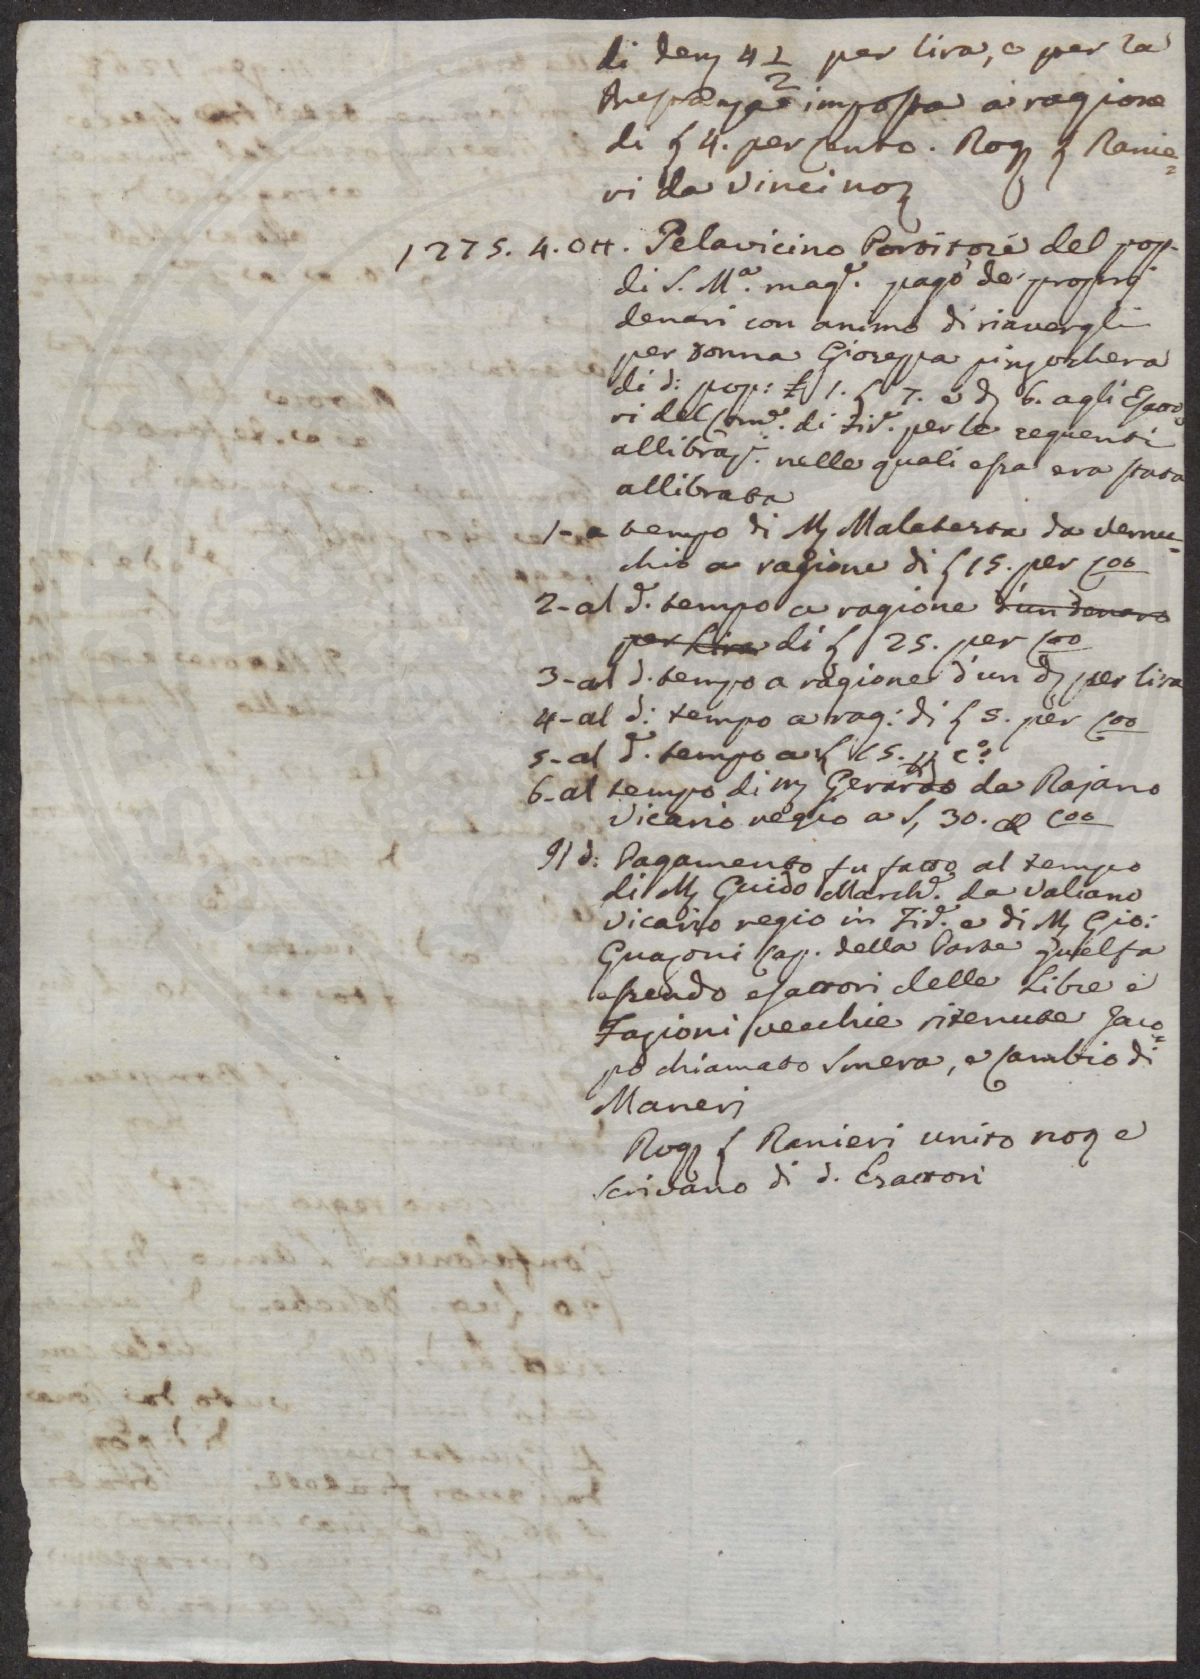 di den 4 1/2 per lira, e per la
imposta a ragione
di ʃ 4. per cento. Rog. ʃ Ranie=
ri da Vinci no
1275. 4. Ott. Pelavicino del pop.
di S. Mª. magᵉ. pagò de proprj
denari con animo di riavergli
per donna Gioseppa pinzochera
di d: pop: £ 1. ʃ 7. e d 6. agli Esatto
ri del Comᵉ. di Firᵉ. per le seguenti
allibraz. nelle quali essa era stata
allibrata
1-a tempo di M Malatesta da Veruc=
chio a ragione di ʃ 15. per C00
2-al dᵒ. tempo a ragione d'un denaro
per lira di ʃ 25. per C00
3-al d. tempo a ragione d'un d per lira
4-al d: tempo a rag: di ʃ 5. per C00
5-al dᵒ. tempo a ʃ 15. p cᵒ
6-al tempo di M Gerardo da Rajano
Vicario regio a ʃ 30. C00
Il d: Pagamento fu fatto al tempo
di M Guido Marchᵉ. da Valiano
Vicario regio in Firᵉ. e di M Gio:
Guazoni Cap. della Parte guelfa
essendo esattori delle Libre e
Fazioni vecchie ritenute Jaco=
po chiamato Smera, e Cambio di
Maneri
Rog ʃ Ranieri unito no e
scrivano di d. Esattori